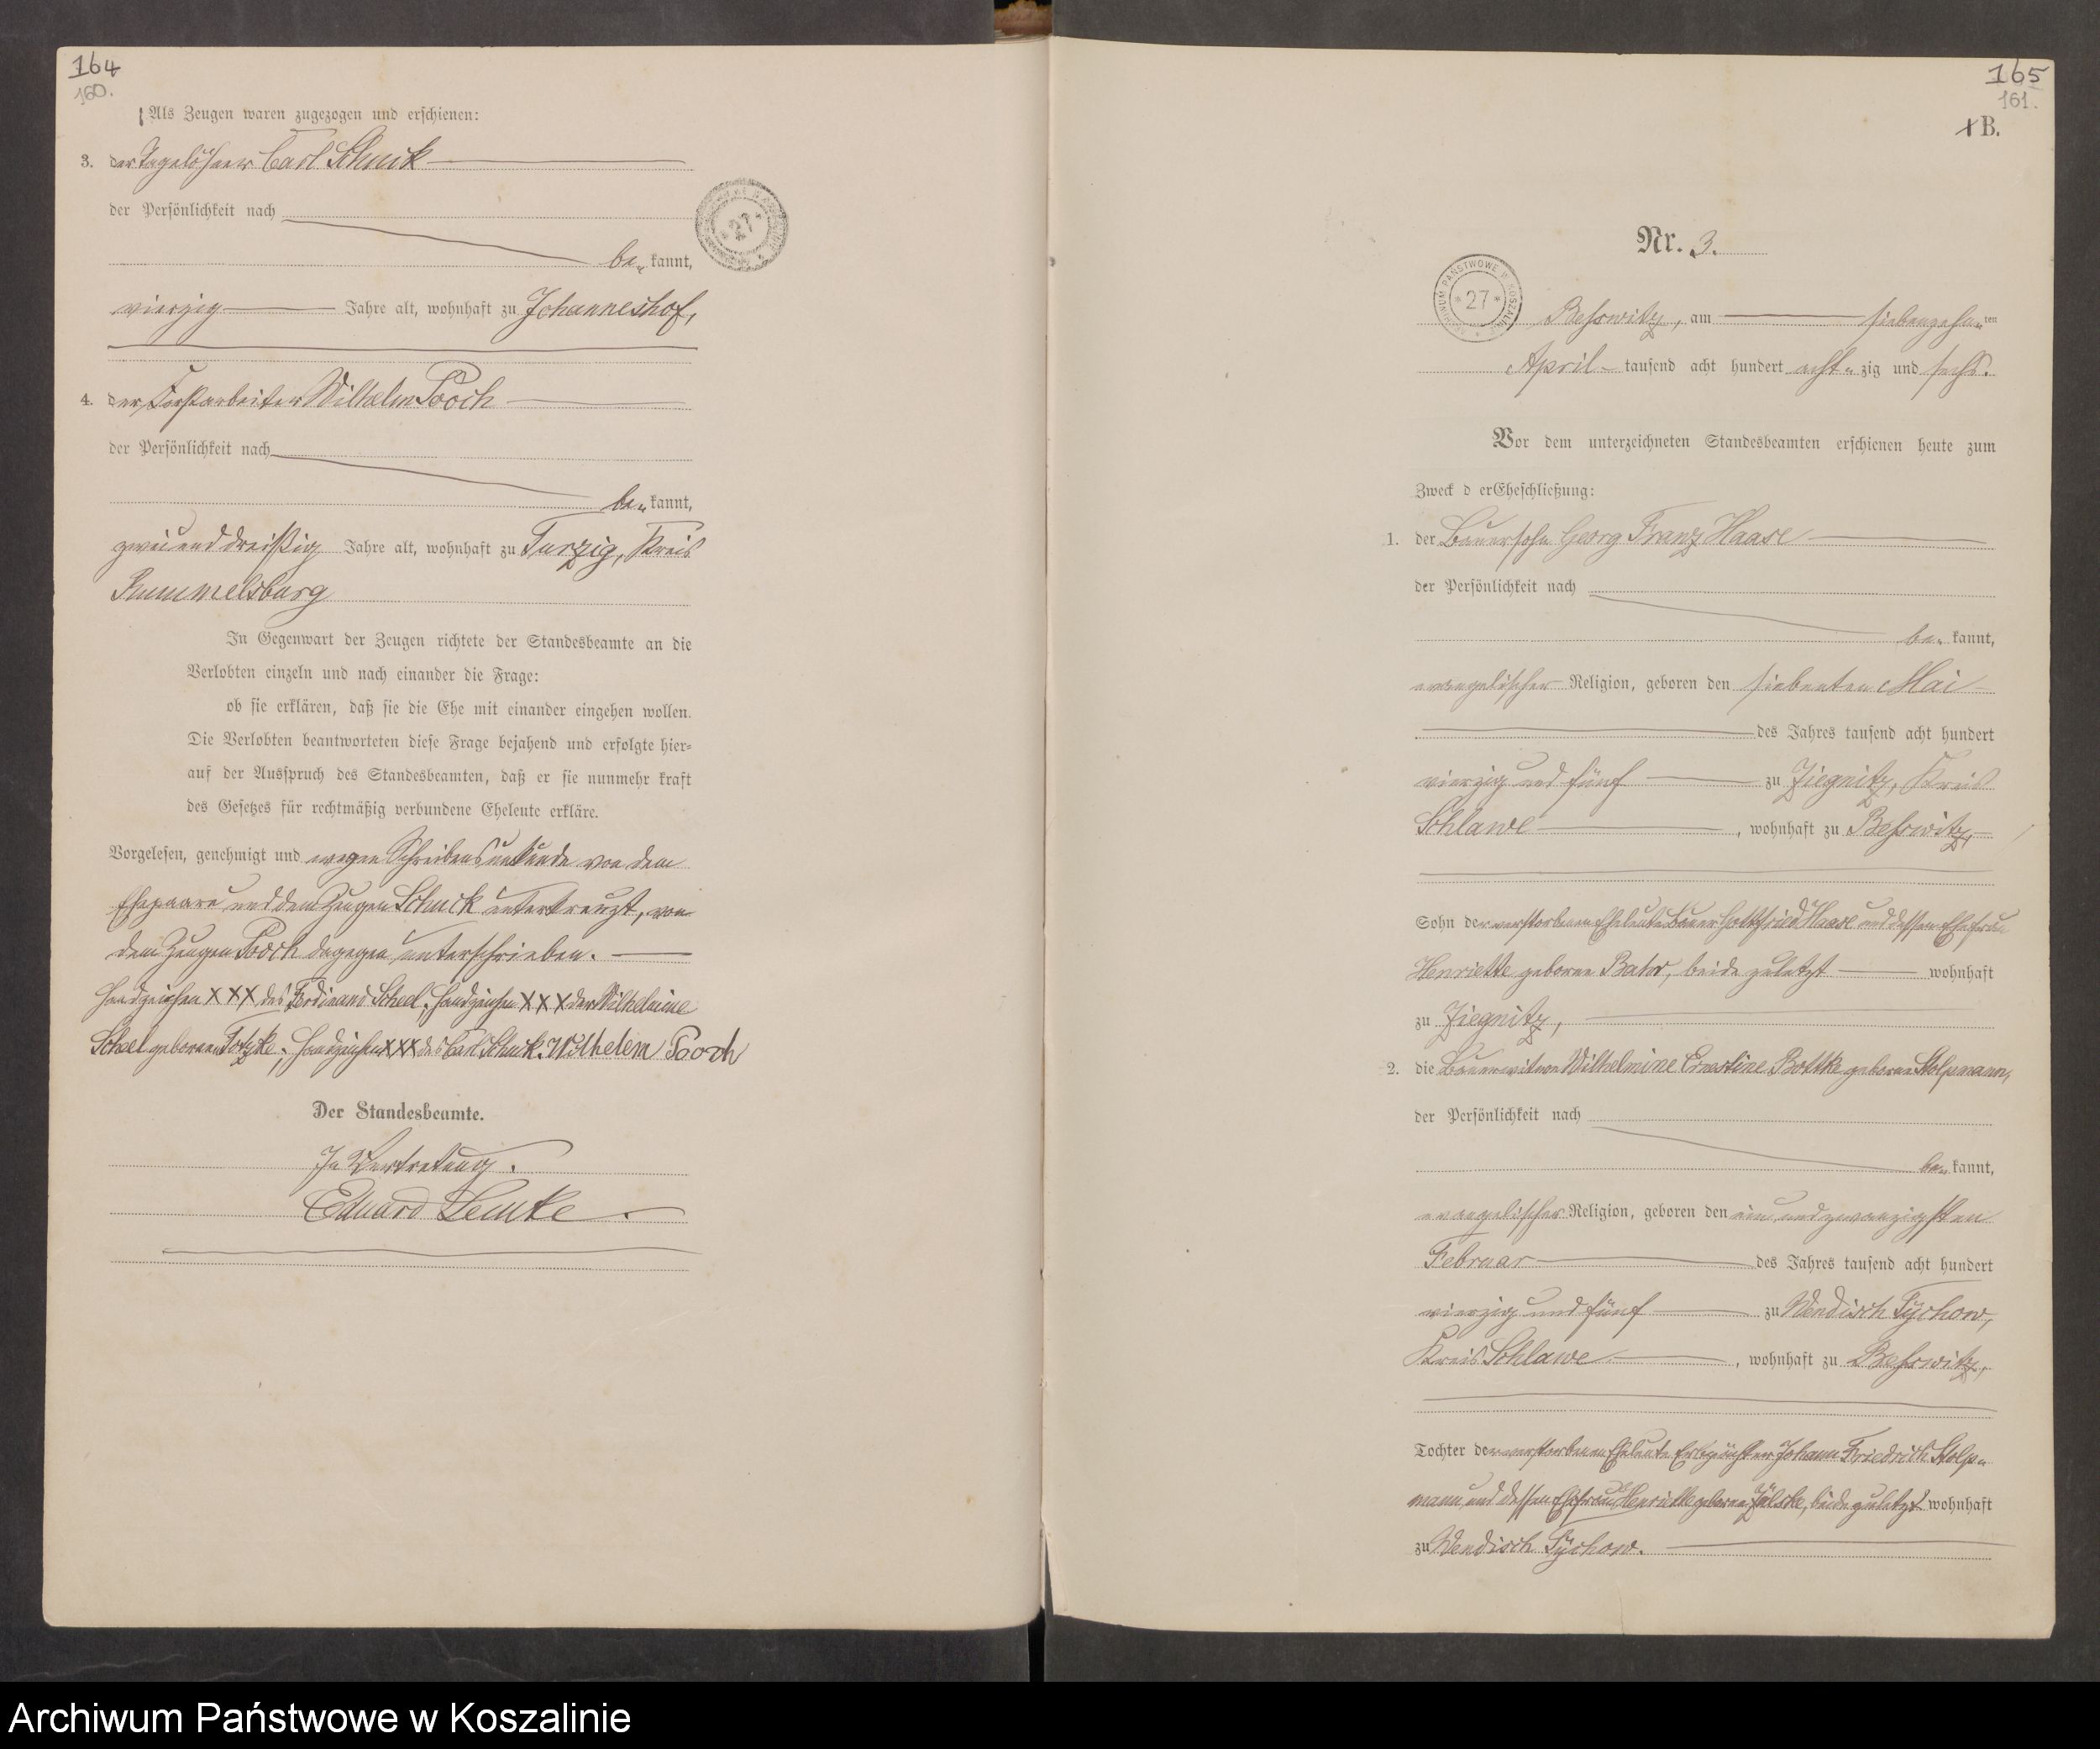 164
160.
Als Zeugen waren zugezogen und erschienen:
3. der Tagelöhner Carl Schuck
der Persönlichkeit nach
be„kannt,
vierzig Jahre alt, wohnhaft zu Johanneshof,
4. der Forstarbeiter Wilhelm Pooch
der Persönlichkeit nach
be„kannt,
zweiunddreißig Jahre alt, wohnhaft zu Turzig, Kreis
Rummelsburg
In Gegenwart der Zeugen richtete der Standesbeamte an die
Verlobten einzeln und nach einander die Frage:
ob sie erklären, daß sie die Ehe mit einander eingehen wollen.
Die Verlobten beantworteten diese Frage bejahend und erfolgte hier-
auf der Ausspruch des Standesbeamten, daß er sie nunmehr kraft
des Gesetzes für rechtmäßig verbundene Eheleute erkläre.
Vorgelesen, genehmigt und wegen Schreibensunkunde von dem
Ehepaare und dem Zeugen Schuck unterkreuzt, von
dem Zeugen Pooch dagegen unterschrieben.
Handzeichen XXX des Ferdinand Scheel; Handzeichen XXX der Wilhelmine
Scheel geborenen Totzke; Handzeichen XXX des Carl Schuck. Wilhelem Pooch
Der Standesbeamte.
In Vertretung.
Eduard Lemke.
165
161.
B.
Nr. 3.
ARCHIWUM PAŃSTWOWE W KOSZALINIE
* 27 *
Beßwitz, am siebenzehn„ten
April tausend acht hundert acht„zig und sechs.
Vor dem unterzeichneten Standesbeamten erschienen heute zum
Zweck d er Eheschließung:
1. der Bauersohn Georg Franz Haase
der Persönlichkeit nach
be„kannt,
evangelischer Religion, geboren den siebenten Mai
des Jahres tausend acht hundert
vierzig und fünf zu Ziegnitz, Kreis
Schlawe, wohnhaft zu Beßwitz,
Sohn der verstorbenen Eheleute Bauer Gottfried Haase und dessen Ehefrau
Henriette geborne Bator, beide zuletzt wohnhaft
zu Ziegnitz,
2. die Bauerwitwe Wilhelmine Ernestine Bottke geborne Stolpmann,
der Persönlichkeit nach
be„kannt,
evangelischer Religion, geboren den einundzwanzigsten
Februar des Jahres tausend acht hundert
vierzig und fünf zu Wendisch Tychow,
Kreis Schlawe, wohnhaft zu Beßwitz,
Tochter der verstorbenen Eheleute Erbpächter Johann Friedrich Stolp„
mann und dessen Ehefrau Henriette geborne beide zuletzt wohnhaft
zu Wendisch Tychow.
Archiwum Państwowe w Koszalinie